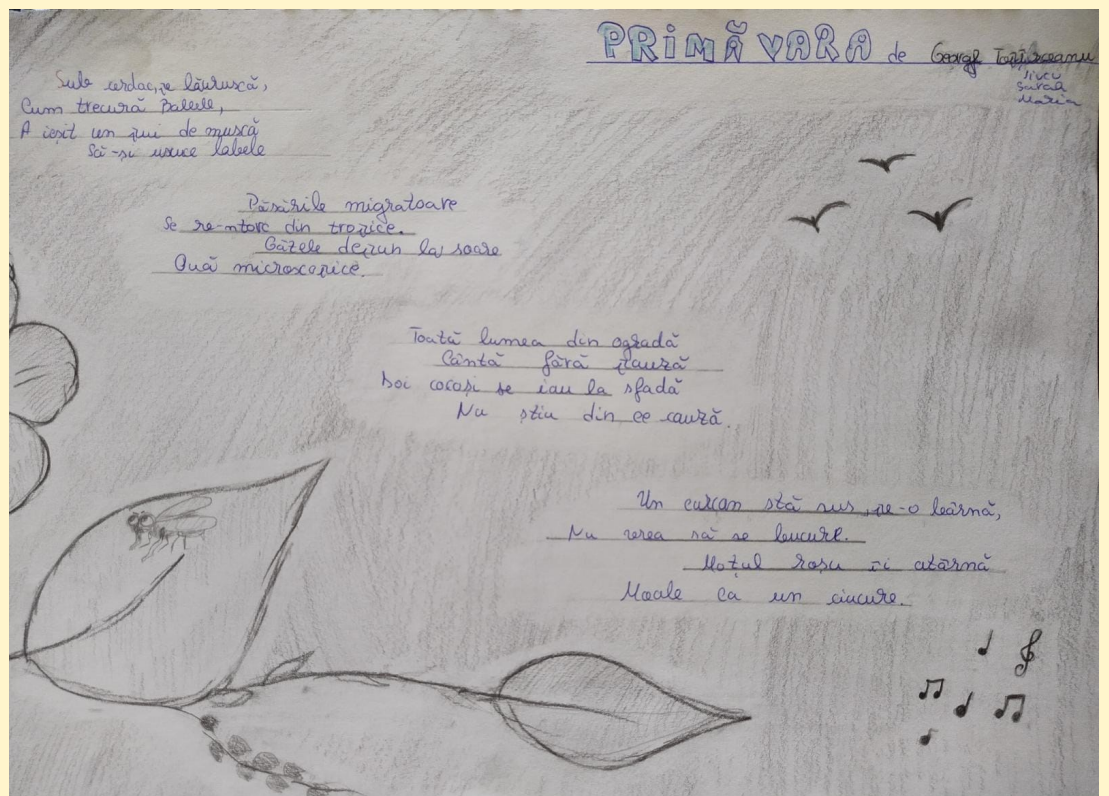 PRIMĂVARA de George Topîrceanu
Jivcu
Sarah
Maria
Sub cerdac, pe lăuruscă,
Cum trecură Babele,
A ieșit un pui de muscă
Să-și usuce labele
Păsările migratoare
Se re-ntorc din tropice.
Gâzele depun la soare
Ouă microscopice.
Toată lumea din ogradă
Cântă fără pauză
Doi cocoși se iau la sfadă
Nu știu din ce cauză.
Un curcan stă sus, pe-o bârnă,
Nu vrea să se bucure.
Moțul roșu îi atârnă
Moale ca un ciucure.